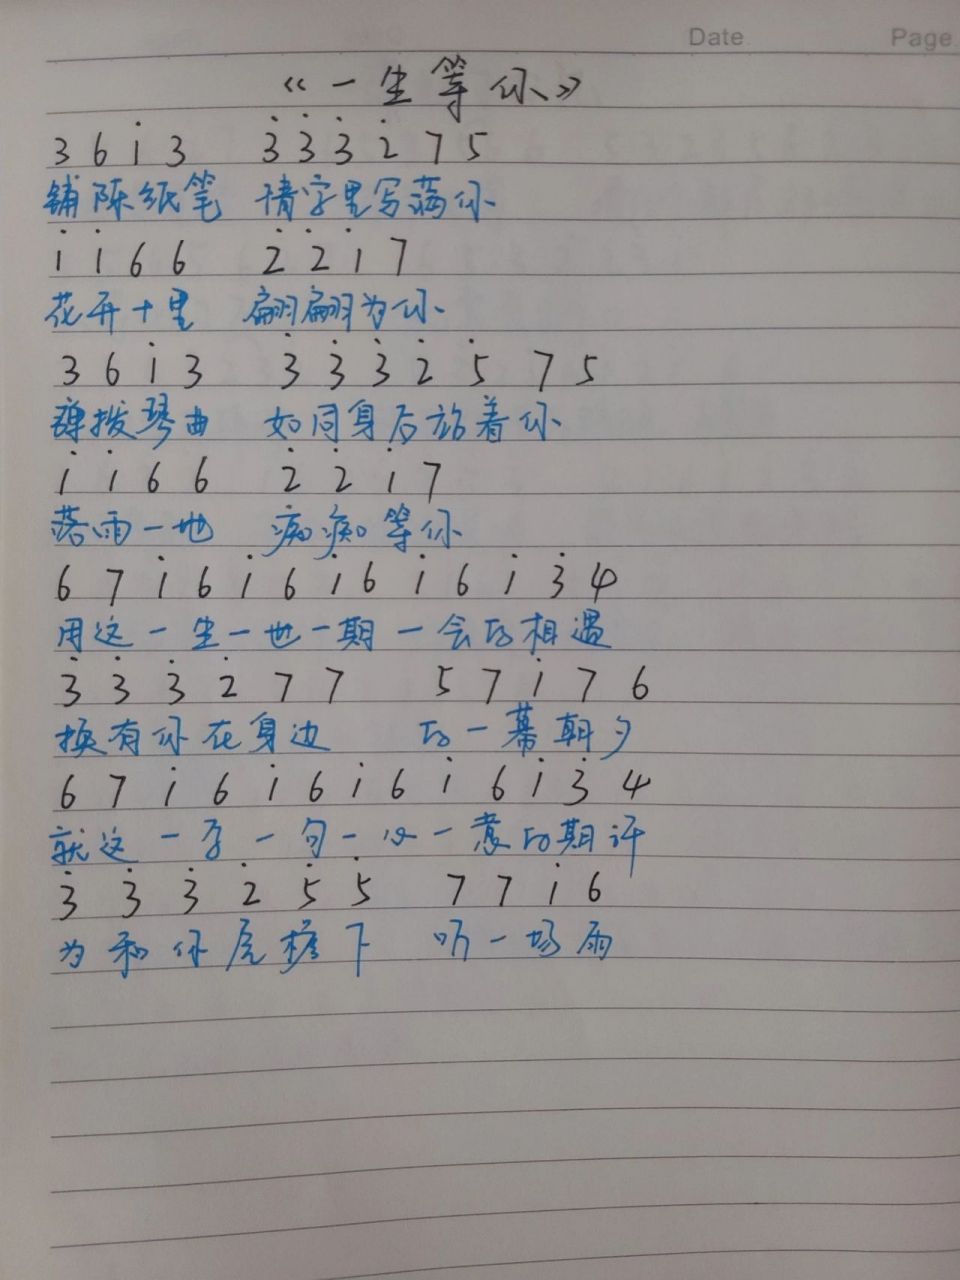 Date Page
《一生等你》
3 6 i 3 3̇ 3̇ 3̇ 2̇ 7 5
铺陈纸笔 情字里写满你
i i 6 6 2̇ 2̇ i 7
花开十里 翩翩为你
3 6 i 3 3̇ 3̇ 3̇ 2̇ 5̇ 7 5
弹拨琴曲 如同身后站着你
i i 6 6 2̇ 2̇ i 7
落雨一地 痴痴等你
6 7 i 6 i 6 i 6 i 6 i 3̇ 4
用这一生一世一期一会的相遇
3̇ 3̇ 3̇ 2̇ 7 7 5 7 i 7 6
换有你在身边 的一幕朝夕
6 7 i 6 i 6 i 6 i 6 i 3̇ 4
就这一字一句一心一意的期许
3̇ 3̇ 3̇ 2̇ 5̇ 5̇ 7 7 i 6
为和你屋檐下 听一场雨